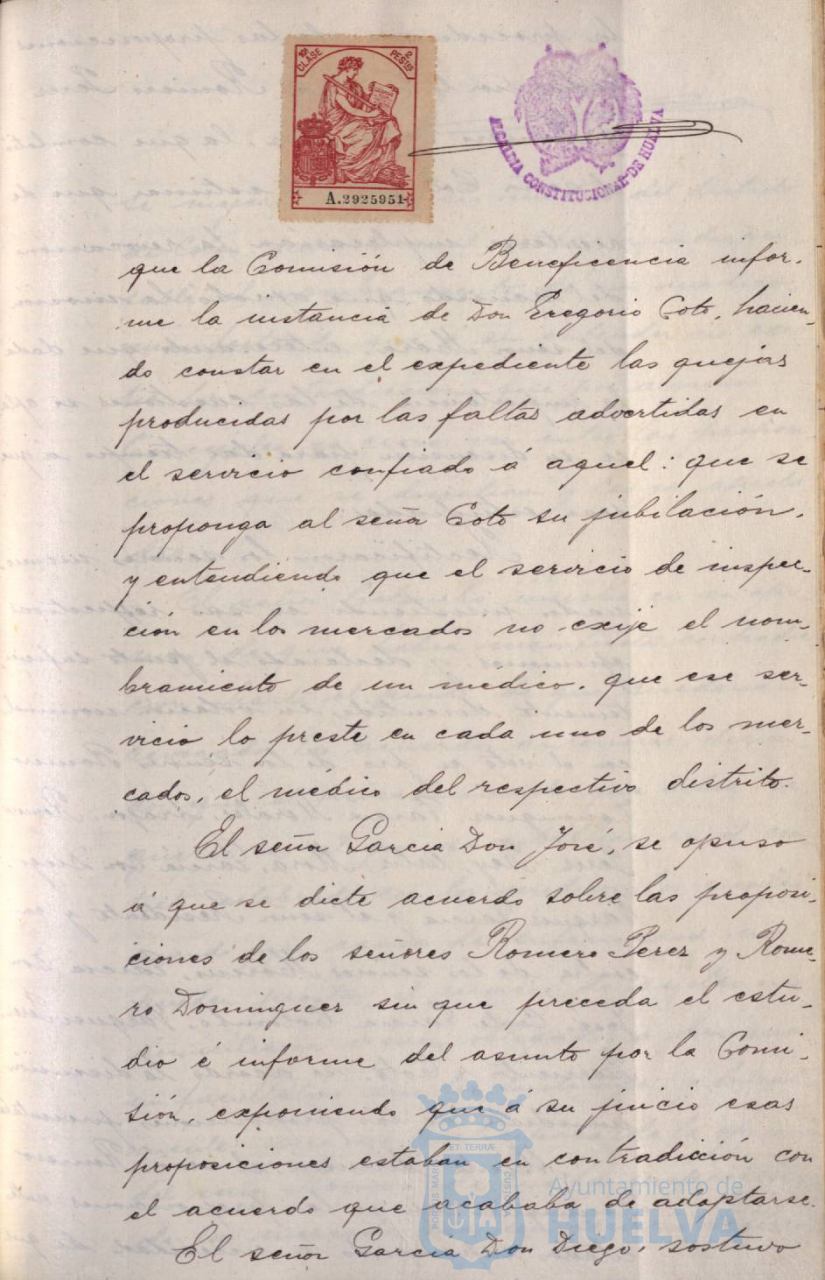 10ª CLASE
2 PESETAS
A.2925951
ALCALDIA CONSTITUCIONAL DE HUELVA
que la Comisión de Beneficencia infor-
me la instancia de Don Gregorio Coto, hacien-
do constar en el expediente las quejas
producidas por las faltas advertidas en
el servicio confiado á aquel: que se
proponga al señor Coto su jubilación,
y entendiendo que el servicio de inspec-
ción en los mercados no exije el nom-
bramiento de un médico, que ese ser-
vicio lo preste en cada uno de los mer-
cados, el médico del respectivo distrito.
El señor Garcia Don José, se opuso
á que se dicte acuerdo sobre las proposi-
ciones de los señores Romero Perez y Rome-
ro Dominguez sin que preceda el estu-
dio é informe del asunto por la Comi-
sión, exponiendo que á su juicio esas
proposiciones estaban en contradicción con
el acuerdo que acababa de adoptarse.
El señor Garcia Don Diego, sostuvo
Ayuntamiento de
HUELVA